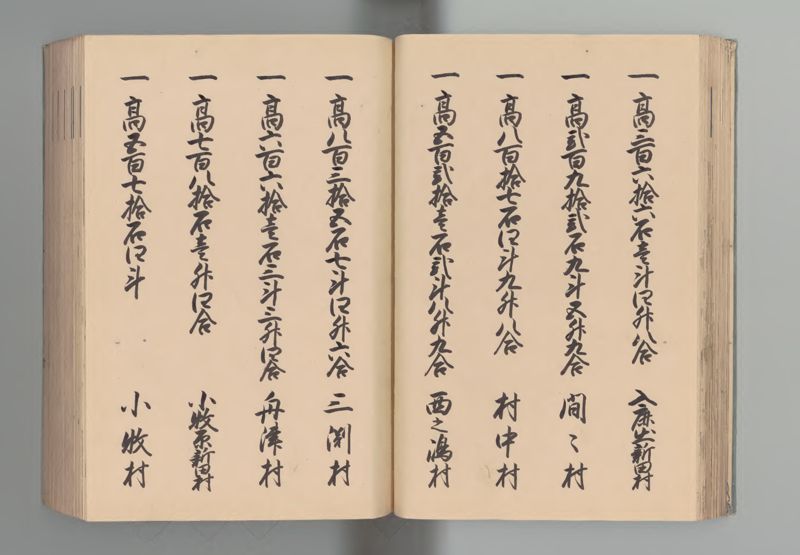 一高三百六拾六石壱斗四舛八合 入鹿出新田村
一高弐百九拾弐石九斗五舛九合 間々村
一高八百拾七石四斗九舛八合 村中村
一高五百弐拾壱石弐斗八舛九合 西之嶋村
一高八百三拾五石七斗四舛六合 三渕村
一高六百六拾壱石三斗三舛四合 舟津村
一高七百八拾石壱舛四合 小牧原新田村
一高五百七拾石四斗 小牧村